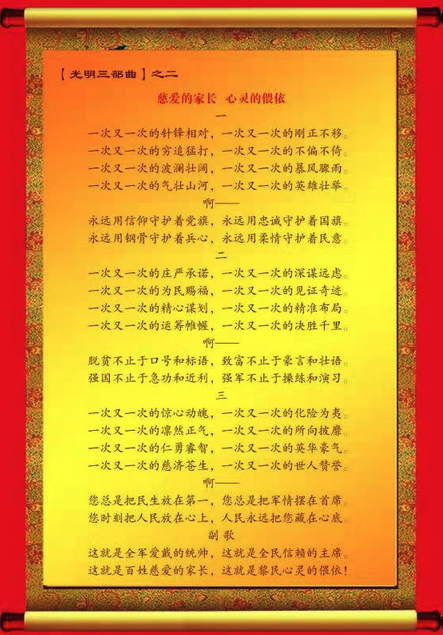 【光明三部曲】之二
慈爱的家长 心灵的偎依
一
一次又一次的针锋相对，一次又一次的刚正不移。
一次又一次的穷追猛打，一次又一次的不偏不倚。
一次又一次的波澜壮阔，一次又一次的暴风骤雨。
一次又一次的气壮山河，一次又一次的英雄壮举。
啊——
永远用信仰守护着党旗，永远用忠诚守护着国旗。
永远用钢骨守护着兵心，永远用柔情守护着民意。
二
一次又一次的庄严承诺，一次又一次的深谋远虑。
一次又一次的为民赐福，一次又一次的见证奇迹。
一次又一次的精心谋划，一次又一次的精准布局。
一次又一次的运筹帷幄，一次又一次的决胜千里。
啊——
脱贫不止于口号和标语，致富不止于豪言和壮语。
强国不止于急功和近利，强军不止于操练和演习。
三
一次又一次的惊心动魄，一次又一次的化险为夷。
一次又一次的凛然正气，一次又一次的所向披靡。
一次又一次的仁勇睿智，一次又一次的英华豪气。
一次又一次的慈济苍生，一次又一次的世人赞誉。
啊——
您总是把民生放在第一，您总是把军情摆在首席。
您时刻把人民放在心上，人民永远把您藏在心底。
副 歌
这就是全军爱戴的统帅，这就是全民信赖的主席。
这就是百姓慈爱的家长，这就是黎民心灵的偎依！